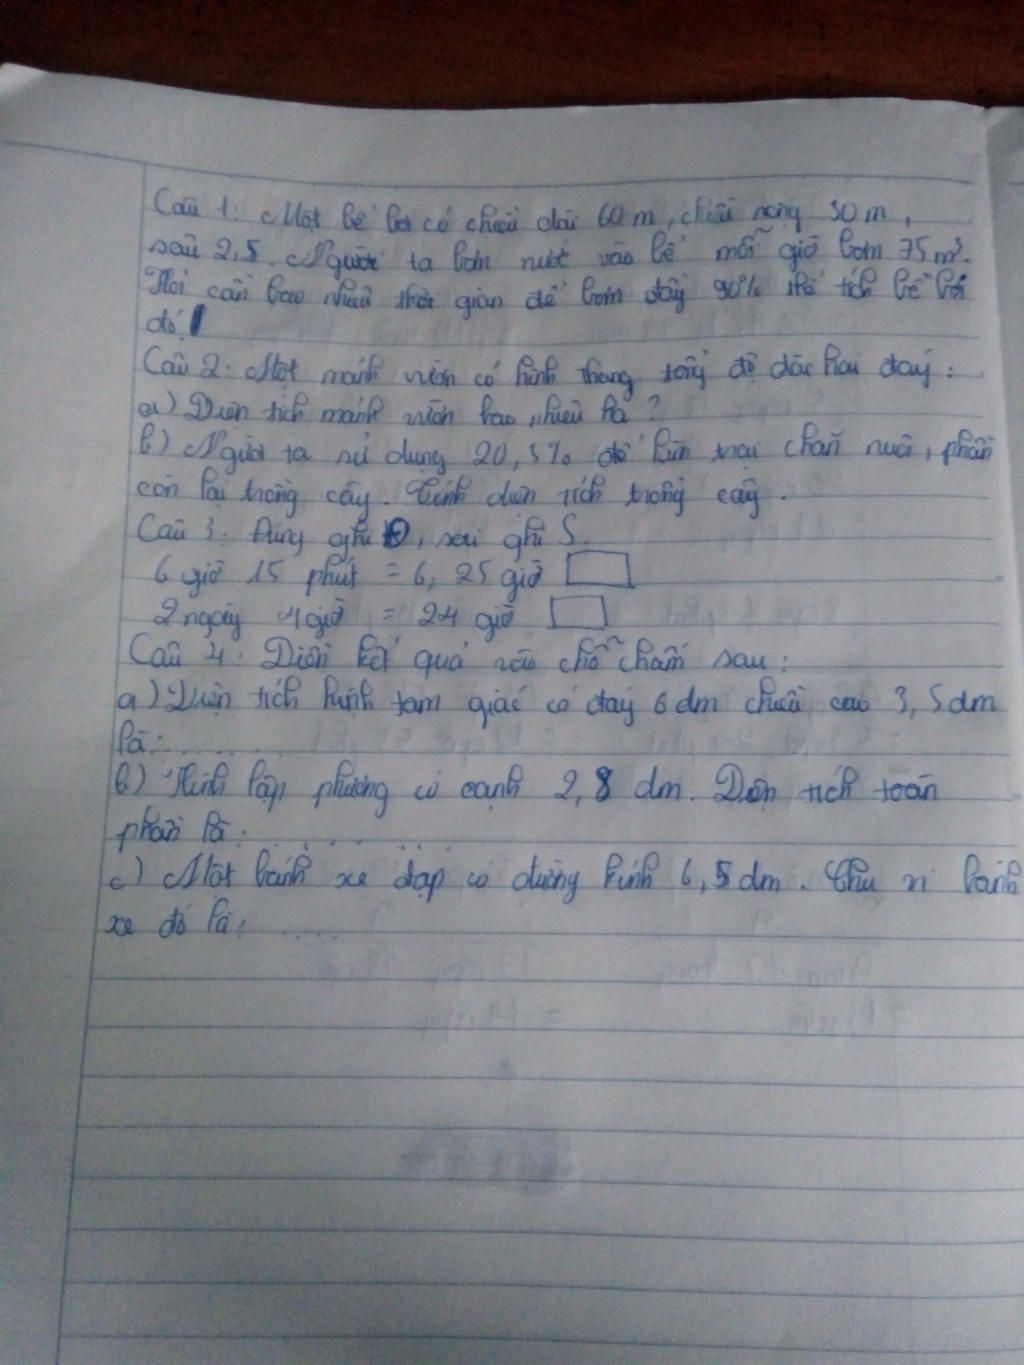 Câu 1: Một bể bơi có chiều dài 60 m, chiều rộng 30 m,
sâu 2,5. Người ta bơm nước vào bể mỗi giờ bơm 75 m³.
Hỏi cần bao nhiêu thời gian để bơm đầy 90% thể tích bể bơi
đó!
Câu 2: Một mảnh vườn có hình thang tổng độ dài hai đáy:
a) Diện tích mảnh vườn bao nhiêu ha?
b) Người ta sử dụng 20,5% để làm trại chăn nuôi, phần
còn lại trồng cây. Tính diện tích trồng cây.
Câu 3: Đúng ghi Đ, sai ghi S.
6 giờ 15 phút = 6, 25 giờ
2 ngày 4 giờ = 24 giờ
Câu 4: Điền kết quả vào chỗ chấm sau:
a) Diện tích hình tam giác có đáy 6 dm chiều cao 3,5 dm
là: . . . . . . .
b) Hình lập phương có cạnh 2,8 dm. Diện tích toàn
phần là: . . . . . . . .
c) Một bánh xe đạp có đường kính 6,5 dm. Chu vi bánh
xe đó là: . . . . .